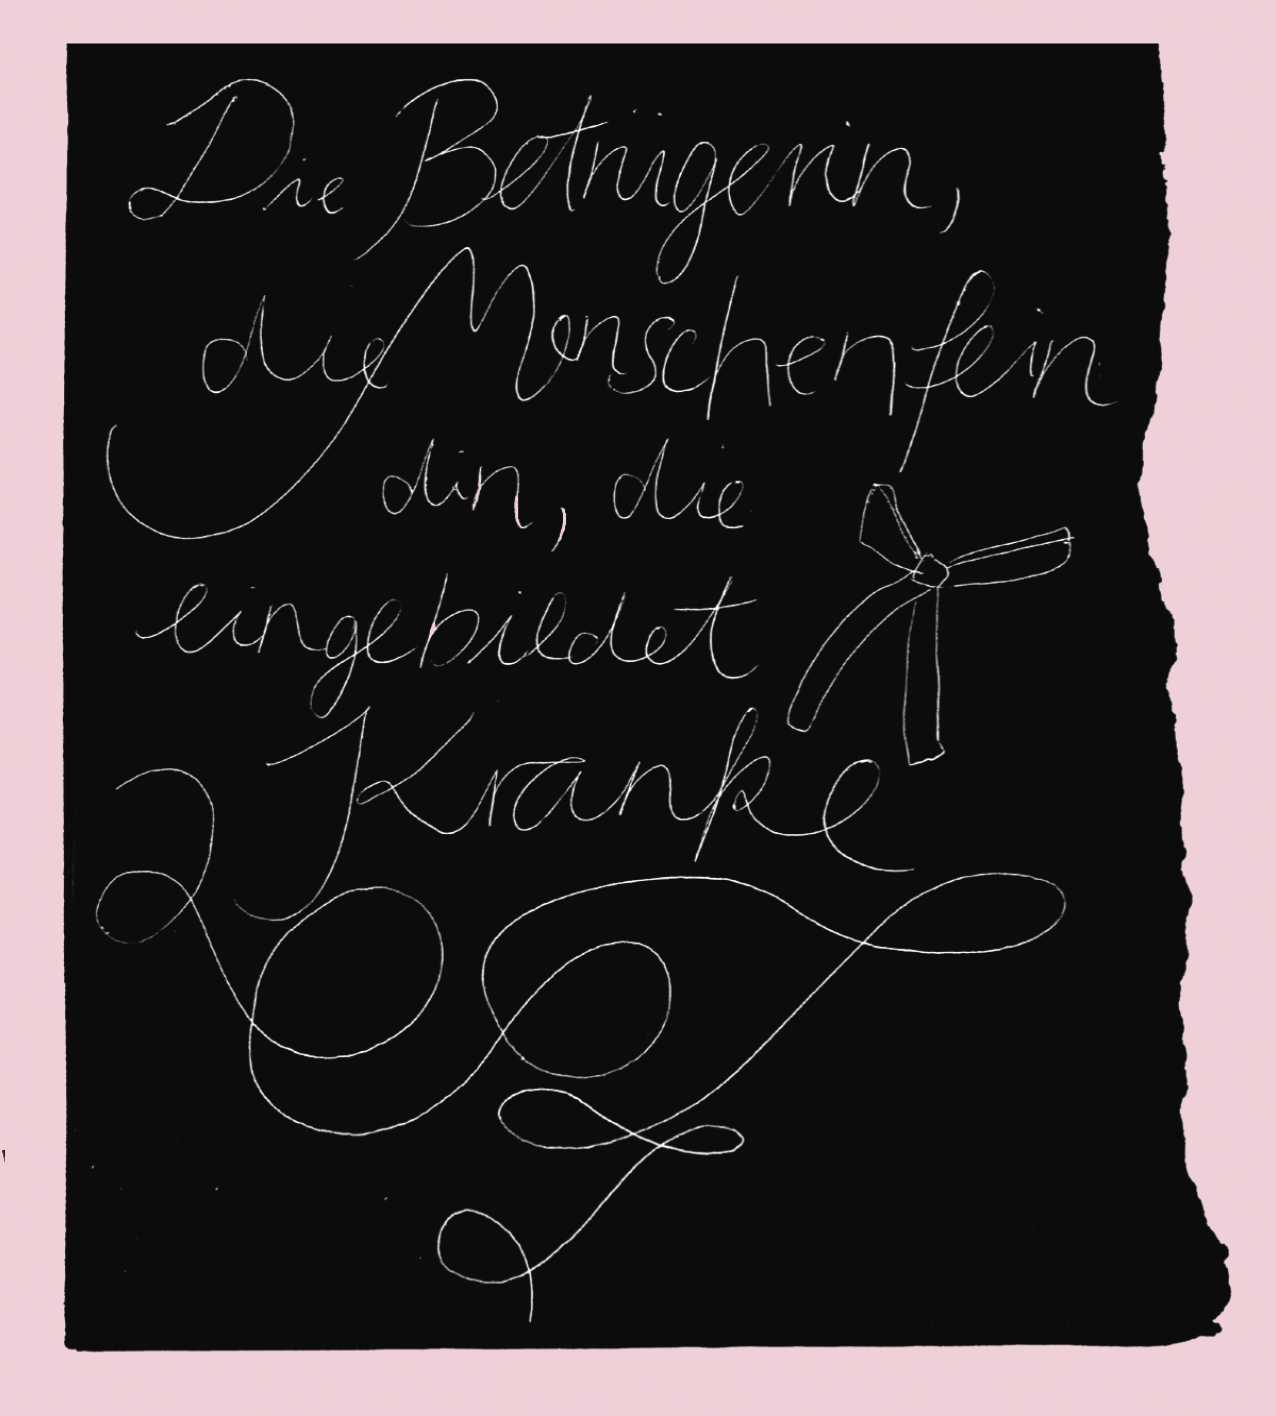 Die Betrügerin,
die Menschenfein
din, die
eingebildet
Kranke